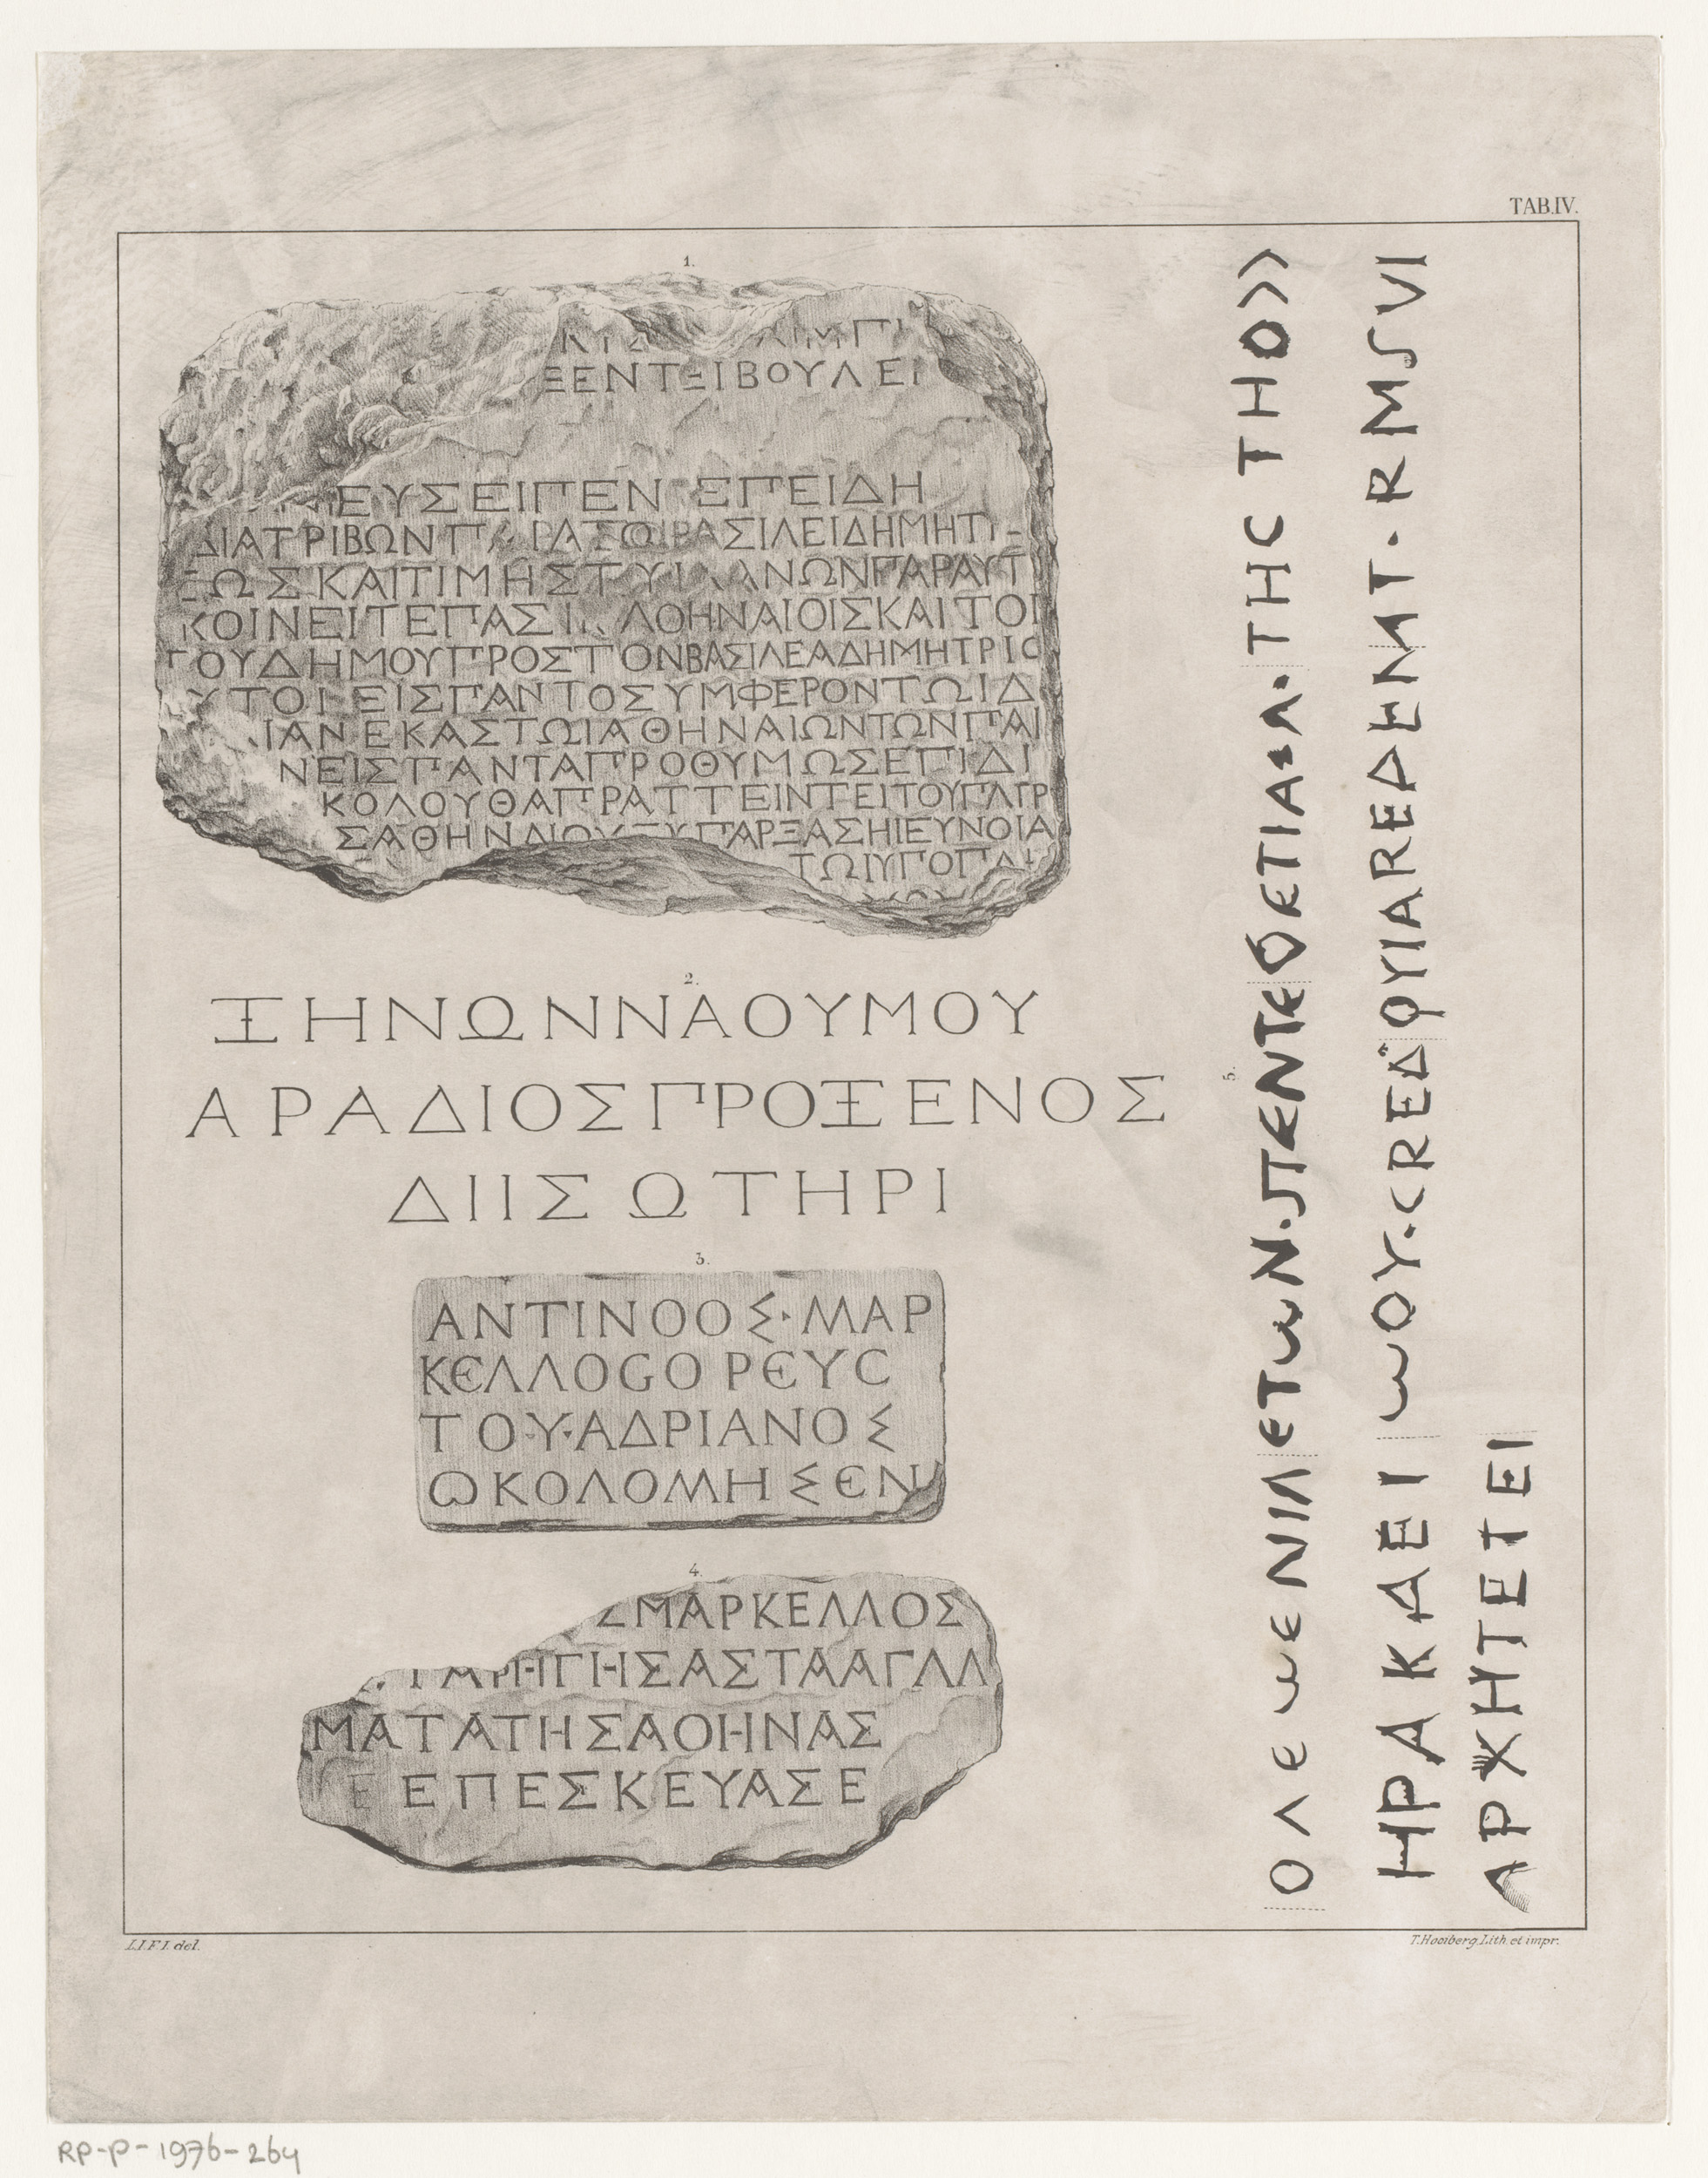 TAB.IV.
1.
ΞΕΝΤΞΙΒΟΥΛΕΙ
ΕΥΣΕΙΠΕΝ ΕΠΕΙΔΗ
ΔΙΑΤΡΙΒΩΝΠΑΡΑΤΩΙΒΑΣΙΛΕΙΔΗΜΗΤΙ
ΩΣΚΑΙΤΙΜΗΣΤΥΙ ΝΩΝΠΑΡΑΥΤ
ΚΟΙΝΕΙΤΕΠΑΣΙ ΛΟΗΝΑΙΟΙΣΚΑΙΤΟΙ
ΤΟΥΔΗΜΟΥΠΡΟΣΤΟΝΒΑΣΙΛΕΑΔΗΜΗΤΡΙΟ
ΥΤΟΙΕΙΣΠΑΝΤΟΣΥΜΦΕΡΟΝΤΩΙΔ
ΙΑΝΕΚΑΣΤΩΙΑΘΗΝΑΙΩΝΤΩΝΠΑΙ
ΝΕΙΣΠΑΝΤΑΠΡΟΘΥΜΩΣΕΠΙΔΙ
ΚΟΛΟΥΘΑΠΡΑΤΤΕΙΝΤΕΙΤΟΥΠΑΤΡ
ΣΑΘΗΝΑΙΟΥ ΠΑΡΞΑΣΗΙΕΥΝΟΙΑ
ΤΩΙΥΠΟΠΑ
2.
ΞΗΝΩΝΝΑΟΥΜΟΥ
ΑΡΑΔΙΟΣΠΡΟΞΕΝΟΣ
ΔΙΙΣΩΤΗΡΙ
3.
ΑΝΤΙΝΟΟΣ·ΜΑΡ
ΚΕΛΛΟGΟΡΕΥC
ΤΟΥ·ΑΔΡΙΑΝΟΣ
ΩΚΟΛΟΜΗΣΕΝ
4.
ΣΜΑΡΚΕΛΛΟΣ
ΗΓΗΣΑΣΤΑΑΓΛΛ
ΜΑΤΑΤΗΣΑΟΗΝΑΣ
Ε ΕΠΕΣΚΕΥΑΣΕ
5.
ΟΛΕωΕΝΙΛΕΤωΝ·ΠΕΝΤΕ ΤΗC ΤΗΟ
ΗΡΑΚΔΕΙωΟΥ·CRΕΔ
ΑΡΧΗΤΕΤΕΙ
I.I.F.I. del.
T. Hooiberg. Lith. et impr.
RP-P-1976-264